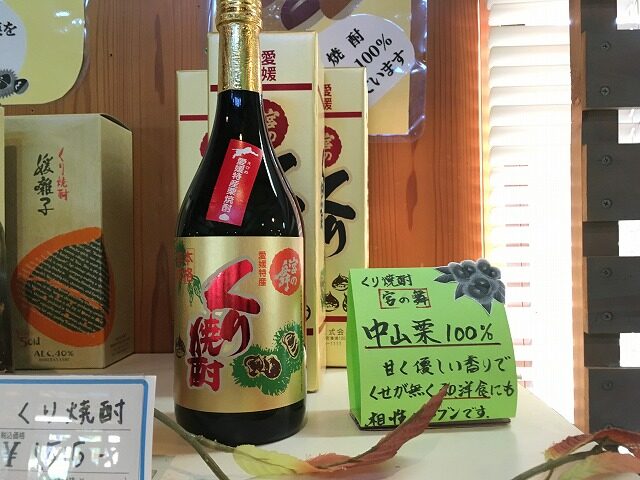 焼酎
100%
ています
愛媛
宮の舞
くり
くり焼酎
媛囃子
Gold
ALC.40%
愛媛特産栗焼酎
愛媛特産
宮の舞
本格
くり
焼酎
株式会
くり焼酎
宮の舞
中山栗100%
甘く優しい香りで
くせが無く和洋食にも
相性です。
くり焼酎
税込価格
¥